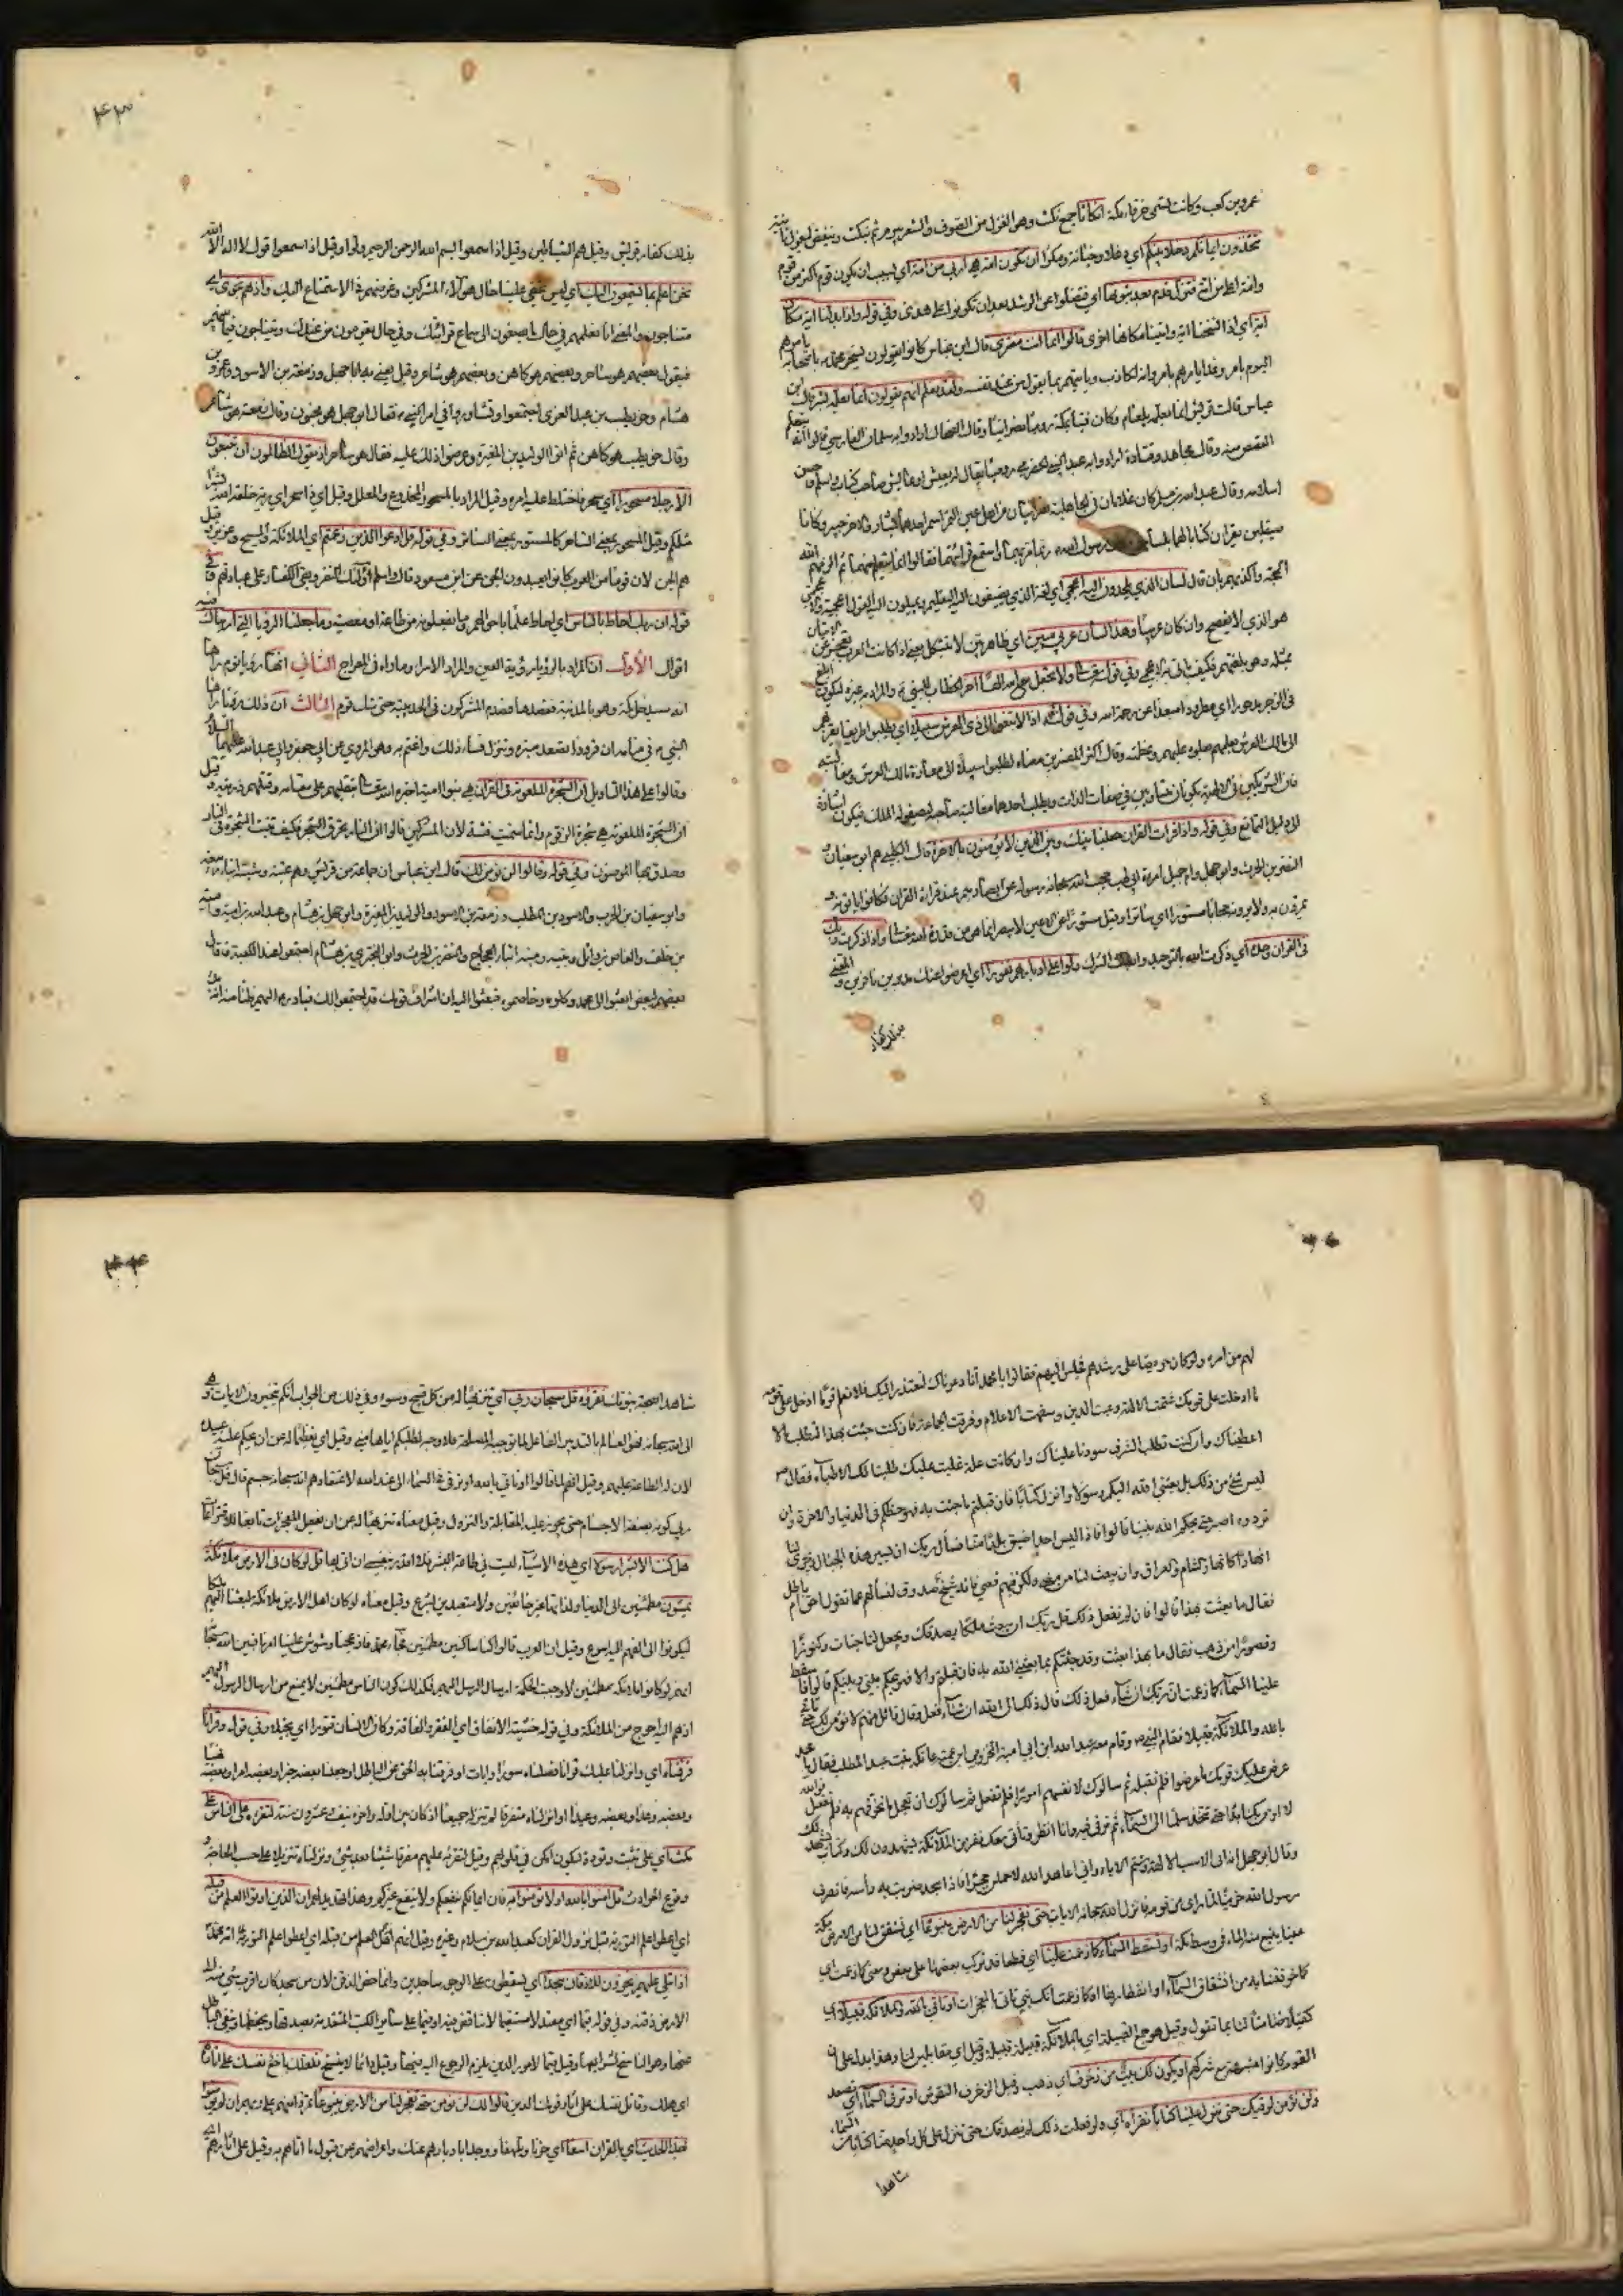 عمرو بن كعب وكانت تسمى خرقاء مكة انكاثا جمع نكث وهو الغزل من الصوف والشعر يبرم ثم ينكث وينقض ليغزل ثانية
تتخذون ايمانكم دخلا بينكم اي دغلا وخيانة ومكرا ان تكون امة هي اربى من امة اي بسبب ان يكون قوم اكثر من قوم
وامة اعلى من امة فتزل قدم بعد ثبوتها اي فتضلوا عن الرشد بعد ان تكونوا على هدى وفي قوله واذا بدلنا اية مكان
اية اي اذا نسخنا اية واتينا مكانها اخرى قالوا انما انت مفتر قال ابن عباس كانوا يقولون يسخر محمد باصحابه يامرهم
اليوم بامر وغدا يامرهم بامر وانه لكاذب وياتيهم بما يقول من عند نفسه ولقد نعلم انهم يقولون انما يعلمه بشر قال ابن
عباس قالت قريش انما يعلمه بلعام وكان قينا بمكة روميا نصرانيا وقال الضحاك اراد وابه سلمان الفارسي قالوا انه يتعلم
القصص منه وقال مجاهد وقتادة اراد وابه عبدا لبني الحضرمي روميا يقال له يعيش او عائش صاحب كتاب اسلم وحسن
اسلامه وقال عبد الله بن مسلم كان غلامان في الجاهلية نصرانيان من اهل عين التمر اسم احدهما يسار والاخر خير وكانا
صيقلين يقران كتابا لهما بلسانهم وكان رسول الله ربما مر بهما واستمع قرائتهما فقالوا انما يتعلم منهما ثم الزمهم الله
الحجة واكذبهم بان قال لسان الذي يلحدون اليه اعجمي اي لغة الذي يضيفون اليه التعليم ويميلون اليه القول اعجمية والاعجمي
هو الذي لا يفصح وان كان عربيا وهذا لسان عربي مبين اي ظاهر بين لا يتشكل يعني اذا كانت العرب تعجز عن الاتيان
بمثله وهو بلغتهم فكيف ياتي به الاعجمي وفي قوله تعالى ولا تجعل مع الله الها اخر الخطاب للنبي والمراد به غيره ليكون ابلغ
في الزجر مدحورا اي مطرودا مبعدا عن رحمة الله وفي قوله اذا لابتغوا الى ذي العرش سبيلا اي يطلبوا طريقا يقربهم
الى مالك العرش لعلمهم بعلوه عليهم وعظمته وقال اكثر المفسرين معناه لطلبوا سبيلا الى معازة مالك العرش ومغالبته
فان الشريكين في الالهية يكونان متساويين في صفات الذات ويطلب احدهما مغالبة صاحبه ليصفو له الملك فيكون اشارة
الى دليل التمانع وفي قوله واذا قرات القران جعلنا بينك وبين الذين لا يؤمنون بالاخرة قال الكلبي هم ابو سفيان و
النضر بن الحرث وابو جهل وام جميل امراة ابي لهب حجب الله سبحانه رسوله عن ابصارهم عند قراءة القران فكانوا ياتونه و
يمرون به ولا يرونه حجابا مستورا اي ساترا وقيل مستورا عن الاعين لا يبصر انما هو من قدرة الله تعالى واذا ذكرت ربك
في القران وحده اي ذكرت الله بالتوحيد وابطلت الشرك ولوا على ادبارهم نفورا اي اعرضوا عنك مدبرين نافرين والمعني
بذلك كفار
۴۳
بذلك كفار قريش وقيل هم الشياطين وقيل اذا سمعوا بسم الله الرحمن الرحيم ولوا وقيل اذا سمعوا قول لا اله الا الله
نحن اعلم بما يستمعون اليك اي ليس يخفى علينا حال هؤلاء المشركين وغرضهم في الاستماع اليك واذ هم نجوى اي
متناجون والمعنى انا نعلمهم في حال ما يصغون الى سماع قرائتك وفي حال يقومون من عندك ويتناجون فيما بينهم
فيقول بعضهم هو ساحر وبعضهم هو كاهن وبعضهم هو شاعر وقيل يعني به ابا جهل وزمعة بن الاسود وعمرو بن
هشام وحويطب بن عبد العزى اجتمعوا وتشاوروا في امر النبي فقال ابو جهل هو مجنون وقال زمعة هو شاعر
وقال حويطب هو كاهن ثم اتوا الوليد بن المغيرة وعرضوا ذلك عليه فقال هو ساحر اذ يقول الظالمون ان تتبعون
الا رجلا مسحورا اي سحر فاختلط عليه امره وقيل المراد بالمسحور المخدوع والمعلل وقيل اي ذا سحر اي رية خلقه الله بشرا
مثلكم وقيل المسحور بمعنى الساحر كالمستور بمعنى الساتر وفي قوله قل ادعوا الذين زعمتم اي الملائكة والمسيح وعزير وقيل
هم الجن لان قوما من العرب كانوا يعبدون الجن عن ابن مسعود قال واسلم اولئك النفر وبقي الكفار على عبادتهم وفي
قوله ان ربك احاط بالناس اي احاط علما باحوالهم وما يفعلونه من طاعة او معصية وما جعلنا الرؤيا التي اريناك فيه
اقوال الأول ان المراد بالرؤيا رؤية العين والمراد الاسرا وما راه في المعراج الثاني انها رؤيا نوم راها
انه سيدخل مكة وهو بالمدينة فقصدها فصده المشركون في الحديبية حتى شك قوم الثالث ان ذلك رؤيا راها
النبي في منامه ان قرودا تصعد منبره وتنزل فساءه ذلك واغتم به وهو المروي عن ابي جعفر وابي عبد الله عليهما السلام
وقالوا على هذا التاويل ان الشجرة الملعونة في القران هي بنو امية اخبره الله تعالى بتغلبهم على مقامه وقتلهم ذريته وقيل
ان الشجرة الملعونة هي شجرة الزقوم وانما سميت فتنة لان المشركين قالوا ان النار تحرق الشجر فكيف تنبت الشجرة في النار
وصدق بها المؤمنون وفي قوله وقالوا لن نؤمن لك قال ابن عباس ان جماعة من قريش وهم عتبة وشيبة ابنا ربيعة
وابو سفيان بن الحرب والاسود بن المطلب وزمعة بن الاسود والوليد بن المغيرة وابو جهل بن هشام وعبد الله بن امية وامية
بن خلف والعاص بن وائل ونبيه ومنبه ابنا الحجاج والنضر بن الحرث وابو البختري بن هشام اجتمعوا عند الكعبة فقال
بعضهم لبعض ابعثوا الى محمد وكلموه وخاصموه فبعثوا اليه ان اشراف قومك قد اجتمعوا لك فبادر اليهم ظنا منه انه بدا
لهم من امره ولو كان حريصا على رشدهم فجلس اليهم فقالوا يا محمد انا دعوناك لنعتذر اليك فلا نعلم قوما ادخل على قومه
ما ادخلت على قومك شتمت الالهة وعبت الدين وسفهت الاحلام وفرقت الجماعة فان كنت جئت بهذا لتطلب مالا
اعطيناك وان كنت تطلب الشرف سودناك علينا وان كانت علة غلبت عليك طلبنا لك الاطباء فقال ص
ليس شيء من ذلك بل بعثني الله اليكم رسولا وانزل كتابا فان قبلتم ما جئت به فهو حظكم في الدنيا والاخرة وان
تردوه اصبر حتى يحكم الله بيننا قالوا فاذا ليس احد اضيق بلدا منا فسأل ربك ان يسير هذه الجبال ويجري لنا
انهارا كانهار الشام والعراق وان يبعث لنا من مضى وليكن فيهم قصي فانه شيخ صدوق لنسألهم عما تقول احق ام باطل
فقال ما بعثت بهذا قالوا فان لم تفعل ذلك فسل ربك ان يبعث ملكا يصدقك ويجعل لنا جنات وكنوزا
وقصورا من ذهب فقال ما بهذا بعثت وقد جئتكم بما بعثني الله به فان قبلتم والا فهو يحكم بيني وبينكم قالوا فاسقط
علينا السماء كما زعمت ان ربك ان شاء فعل ذلك قال ذلك الى الله ان شاء فعل وقال قائل منهم لا نؤمن لك حتى تاتي
بالله والملائكة قبيلا فقام النبي وقام معه عبد الله ابن ابي امية المخزومي ابن عمته عاتكة بنت عبد المطلب فقال يا محمد
عرض عليك قومك ما عرضوا فلم تقبله ثم سالوك لانفسهم امورا فلم تفعل ثم سالوك ان تعجل ما تخوفهم به فلم تفعل فوالله
لا اومن بك ابدا حتى تتخذ سلما الى السماء ثم ترقى فيه وانا انظر وتاتي معك نفر من الملائكة يشهدون لك وكتاب يشهد لك
وقال ابو جهل انه ابى الا سب الالهة وشتم الاباء واني اعاهد الله لاحملن حجرا فاذا سجد ضربت به راسه فانصرف
رسول الله حزينا لما راى من قومه فانزل الله سبحانه الايات حتى تفجر لنا من الارض ينبوعا اي تشقق لنا من الارض مكة
عينا ينبع منه الماء في وسط مكة او تسقط السماء كما زعمت علينا اي قطعا قد تركب بعضها على بعض ومعنى كما زعمت اي
كما خوفتنا به من انشقاق السماء او انفطارها او كما زعمت انك نبي تاتي بالمعجزات او تاتي بالله والملائكة قبيلا اي
كفيلا ضامنا لنا بما تقول وقيل هو جمع القبيلة اي بالملائكة قبيلة قبيلة وقيل اي مقابلين لنا وهذا يدل على ان
القوم كانوا مشبهة مع شركهم او يكون لك بيت من زخرف اي ذهب وقيل الزخرف النقوش او ترقى في السماء اي تصعد السماء
ولن نؤمن لرقيك حتى تنزل علينا كتابا نقرأه اي ولو فعلت ذلك لم نصدقك حتى تنزل على كل واحد منا كتابا من
شاهدا
۴۴
شاهدا بصحة نبوتك نقرؤه قل سبحان ربي اي تنزيها له من كل قبيح وسوء وفي ذلك من الجواب انكم تتخيرون الايات وهي
الى الله سبحانه فهو العالم بالتدبير الفاعل لما توجبه المصلحة فلا وجه لطلبكم اياها مني وقيل اي تعظيما له عن ان يحكم عليه عبيده
لان له الطاعة عليهم وقيل انهم لما قالوا او تاتي بالله او ترقى في السماء الى عند الله لاعتقادهم انه سبحانه جسم قال قل سبحان
ربي كونه بصفة الاجسام حتى يجوز عليه المقابلة والنزول وقيل معناه تنزيها له عن ان يفعل المعجزات تابعا للاقتراحات
هل كنت الا بشرا رسولا اي هذه الاشياء ليست في طاقة البشر فلا اقدر بنفسي ان اتي بها قل لو كان في الارض ملائكة
يمشون مطمئنين الى الدنيا ولذاتها غير خائفين ولا متعبدين بشرع وقيل معناه لو كان اهل الارض ملائكة لبعثنا اليهم ملكا
ليكونوا الى الفهم اليه اسرع وقيل ان العرب قالوا كنا ساكنين مطمئنين فجاء محمد فازعجنا وشوش علينا امرنا فبين الله سبحانه
انهم لو كانوا ملائكة مطمئنين لاوجبت الحكمة ارسال الرسل اليهم فكذلك كون الناس مطمئنين لا يمنع من ارسال الرسول اليهم
اذ هم اليه احوج من الملائكة وفي قوله خشية الانفاق اي الفقر والفاقة وكان الانسان قتورا اي بخيلا وفي قوله وقرانا
فرقناه اي وانزلنا عليك قرانا فصلناه سورا وايات او فرقنا به الحق عن الباطل او جعلنا بعضه خبرا وبعضه امرا وبعضه نهيا
وبعضه وعدا وبعضه وعيدا او انزلناه متفرقا لم ننزله جميعا اذ كان بين اوله واخره نيف وعشرون سنة لتقرءه على الناس على
مكث اي على تثبت وتؤدة ليكون امكن في قلوبهم وقيل لتقرئه عليهم مفرقا شيئا بعد شيء ونزلناه تنزيلا على حسب الحاجة و
وقوع الحوادث قل امنوا به او لا تؤمنوا به فان ايمانكم ينفعكم ولا ينفع غيركم وهذا تهديد لهم ان الذين اوتوا العلم من قبله
اي اعطوا علم التورية قبل نزول القران كعبد الله بن سلام وغيره وقيل انهم اهل العلم من قبله اي اعطوا علم التورية
اذا تتلى عليهم يخرون للاذقان سجدا اي يسقطون على الوجوه ساجدين وانما خص الذقن لان من سجد كان اقرب شيء منه الى
الارض ذقنه وفي قوله قيما اي معتدلا مستقيما لا تناقض فيه او قيما على سائر الكتب المتقدمة يصدقها ويحفظها وينفي الباطل
عنها وهو الناسخ لشرائعها وقيل قيما لامور الدين يلزم الرجوع اليه فيها وقيل دائما لا ينسخ فلعلك باخع نفسك على اثارهم
اي مهلك وقاتل نفسك على اثار قومك الذين قالوا لك لن نؤمن لك حتى تفجر لنا من الارض ينبوعا تمردا منهم على ربهم ان لم يؤمنوا
بهذا الحديث اي بالقران اسفا اي حزنا وتلهفا ووجدا بادبارهم عنك واعراضهم عن قبول ما اتاهم به وقيل على اثارهم اي